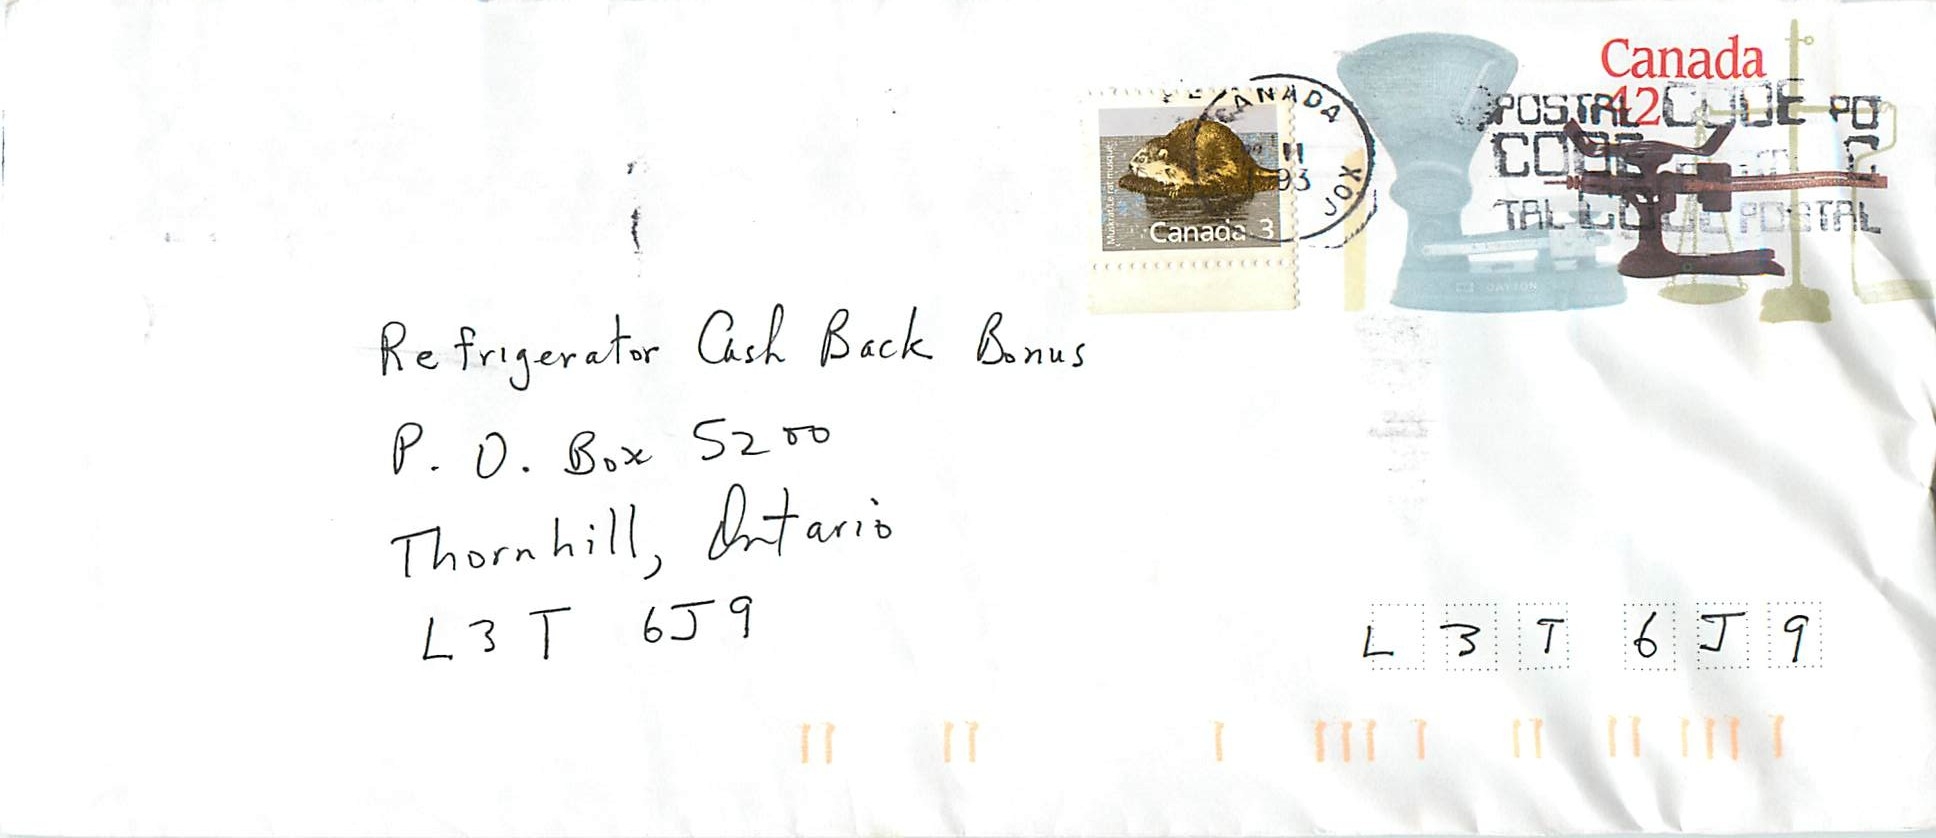 Canada
42
POSTAL CODE PO
CODE
TAL CODE POSTAL
CANADA
11
93
JOX
Muskrat/Le rat musqué
Canada 3
DAYTON
Refrigerator Cash Back Bonus
P. O. Box 5200
Thornhill, Ontario
L3T 6J9
L 3 T 6 J 9